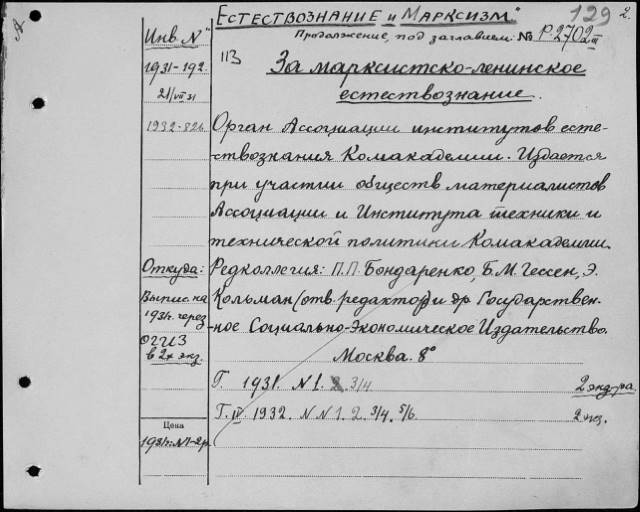 „Естествознание и Марксизм"
129 2.
Продолжение, под заглавием: № Р-2702 III
Инв. №
113
За марксистско-ленинское
1931-192.
естествознание.
21/VII 31
1932-826
Орган Ассоциации институтов есте-
ствознания Комакадемии. Издается
при участии обществ материалистов
Ассоциации и Института техники и
технической политики Комакадемии.
Откуда:
Редколлегия: П.П. Бондаренко, Б.М. Гессен, Э.
Выпис. на
Кольман (отв. редактор) и др. Государствен-
1931г. через
ное Социально-Экономическое Издательство.
ОГИЗ
в 2х экз.
Москва. 8°
Г. 1931. N 1. 2. 3/4
2 экз.
Г. IV. 1932. N N 1. 2. 3/4. 5/6.
2 экз.
Цена
1931г. №1-2р.